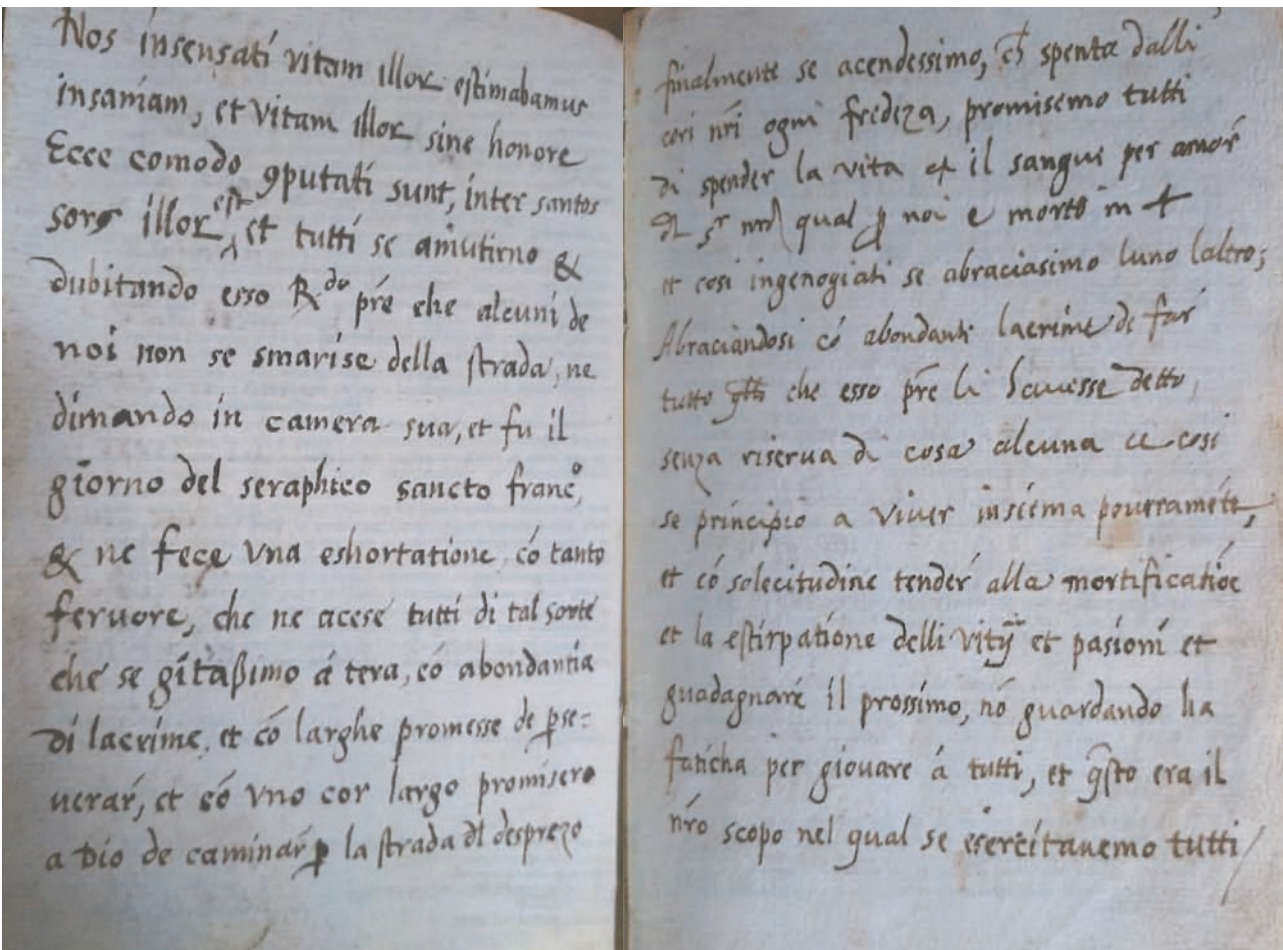 Nos insensati vitam illor estimabamus
insaniam, et vitam illor sine honore
Ecce comodo 9putati sunt, inter santos
sors illor est, et tutti se amutirno &
dubitando esso R.do pr̃e che alcuni de
noi non se smarise della strada, ne
dimando in camera sua, et fu il
giorno del seraphico sancto franc̃o,
& ne fece vna eshortatione, cõ tanto
feruore, che ne acese tutti di tal sorte
che se gitaßimo á tera, cõ abondantia
di lacrime, et cõ larghe promesse de ꝑse=
uerar̃, et cõ vno cor largo promisero
a Dio de caminar̃ ꝑ la strada dl desprezo
finalmente se acendessimo, et spenta dalli
cori nr̃i ogni frideza, promisemo tutti
di spender la vita et il sangue per amor̃
dl sr nr̃o qual ꝑ noi e morto in +
et cosi ingenogiati se abraciasimo luno laltro;
Abraciandosi cõ abondanti lacrime di far
tutto q̃llo che esso pr̃e li hauesse detto,
senza riserua di cosa alcuna et cosi
se principio a viuer insiema poueramẽte,
et cõ solecitudine tender̃ alla mortificatiõe
et la estirpatione delli vitij et pasioni et
guadagnare il prossimo, nõ guardando ha
faticha per giouare á tutti, et q̃sto era il
nr̃o scopo nel qual se esercitauemo tutti /